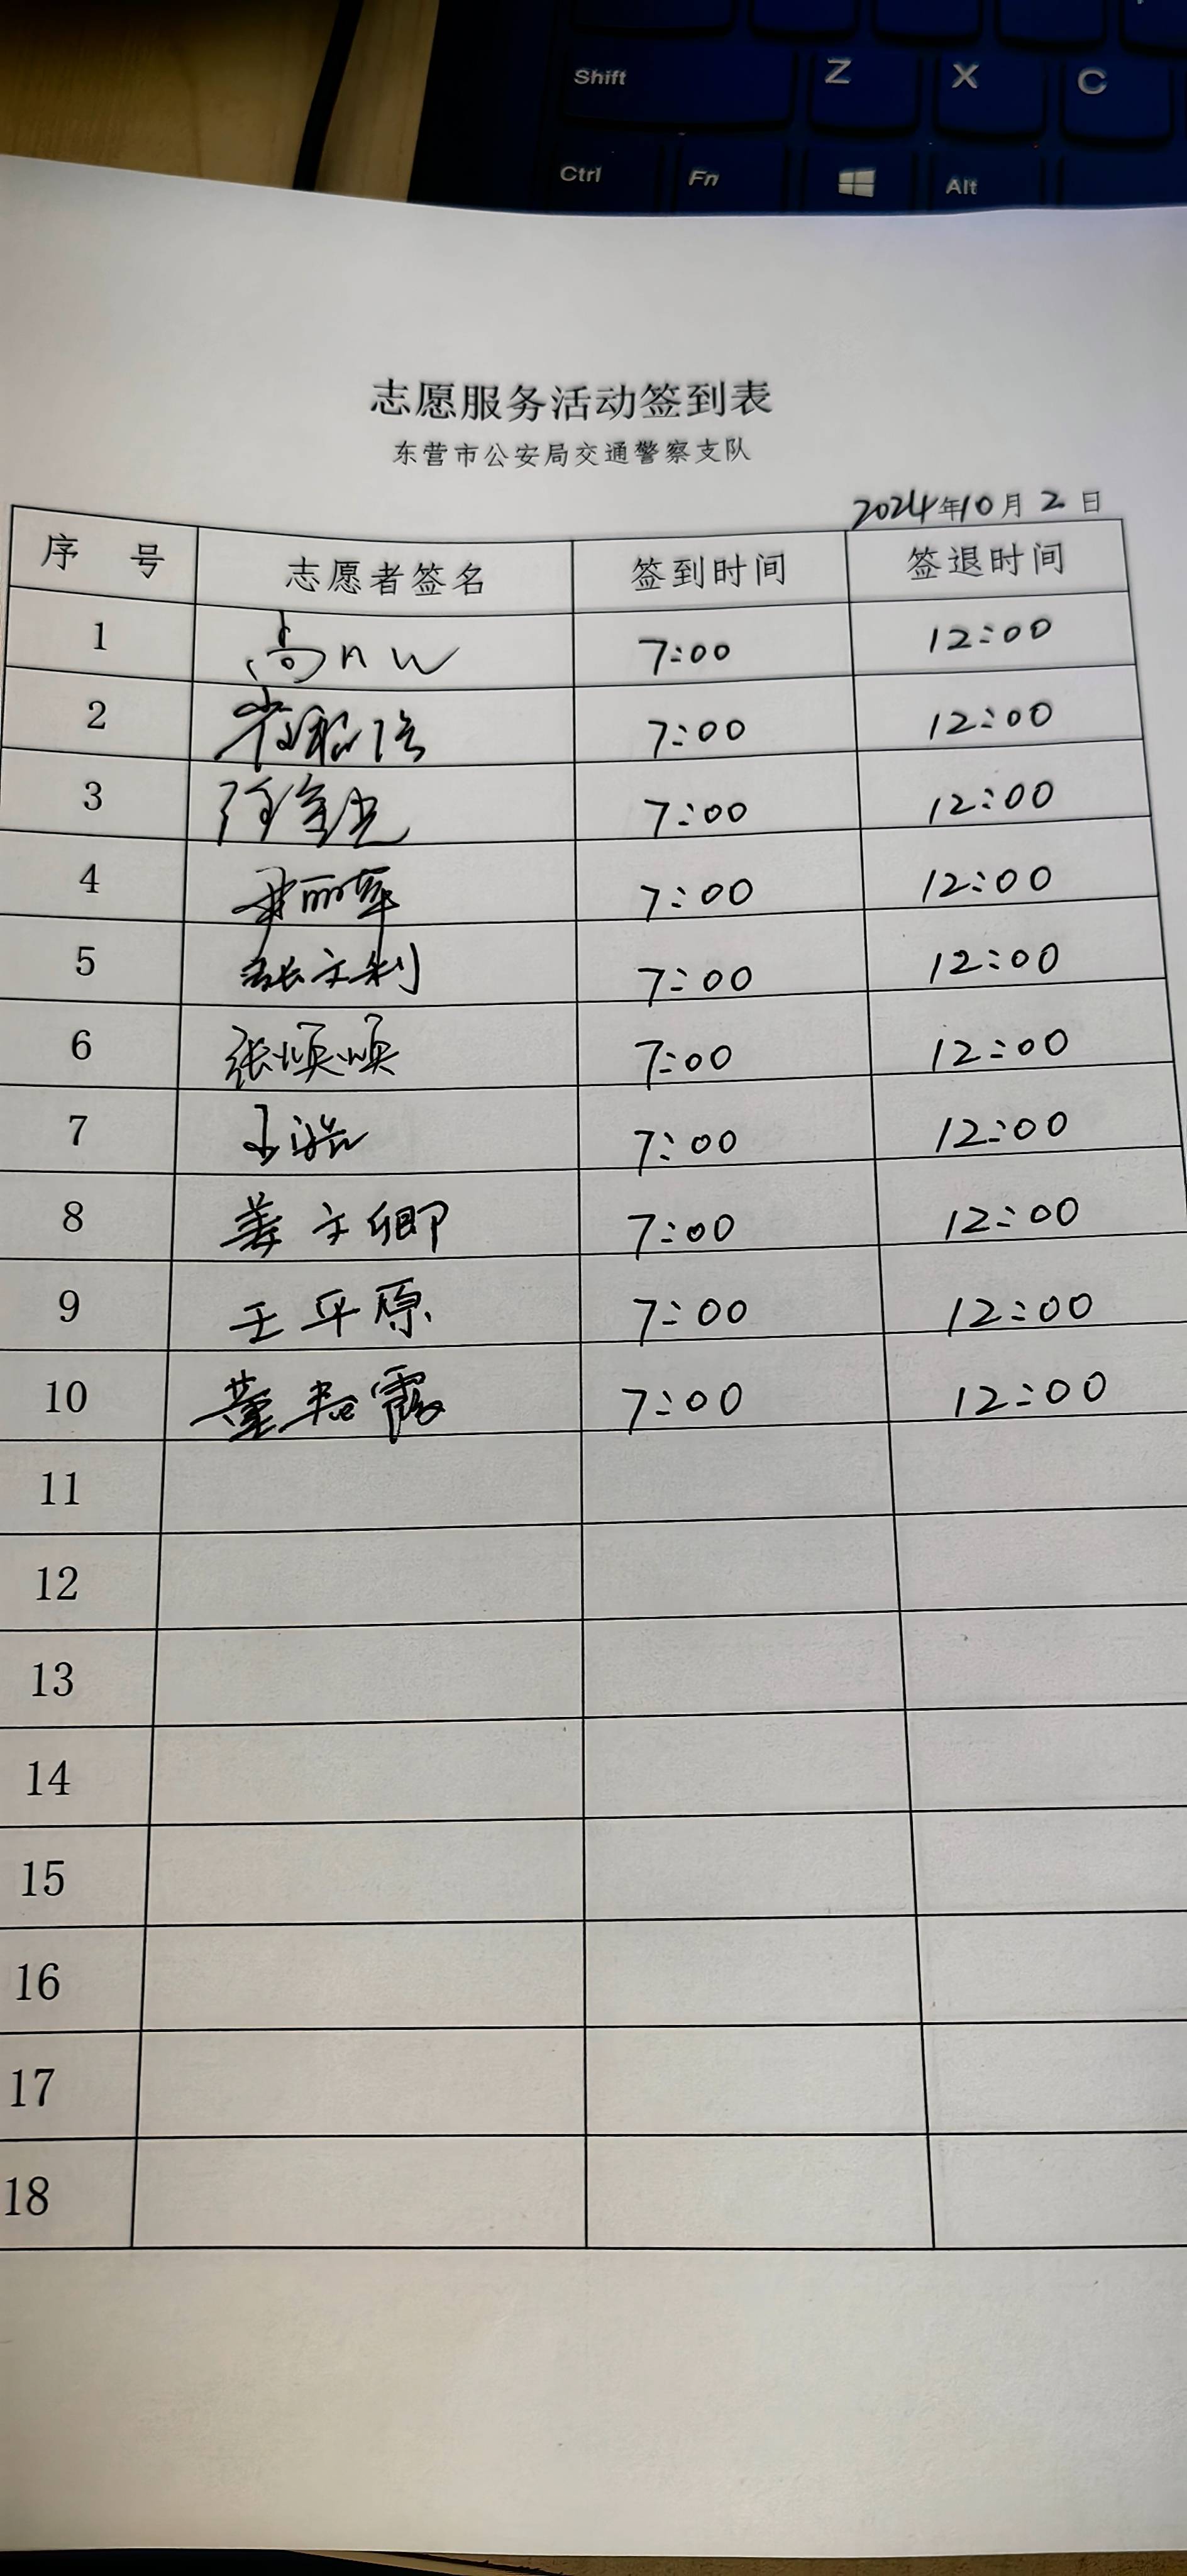 Shift Z X C
Ctrl Fn Alt
志愿服务活动签到表
东营市公安局交通警察支队
2024年10月2日
序 号 志愿者签名 签到时间 签退时间
1 高 7:00 12:00
2 7:00 12:00
3 7:00 12:00
4 7:00 12:00
5 张文利 7:00 12:00
6 张顺顺 7:00 12:00
7 王浩 7:00 12:00
8 姜文卿 7:00 12:00
9 王平原 7:00 12:00
10 董 霞 7:00 12:00
11
12
13
14
15
16
17
18